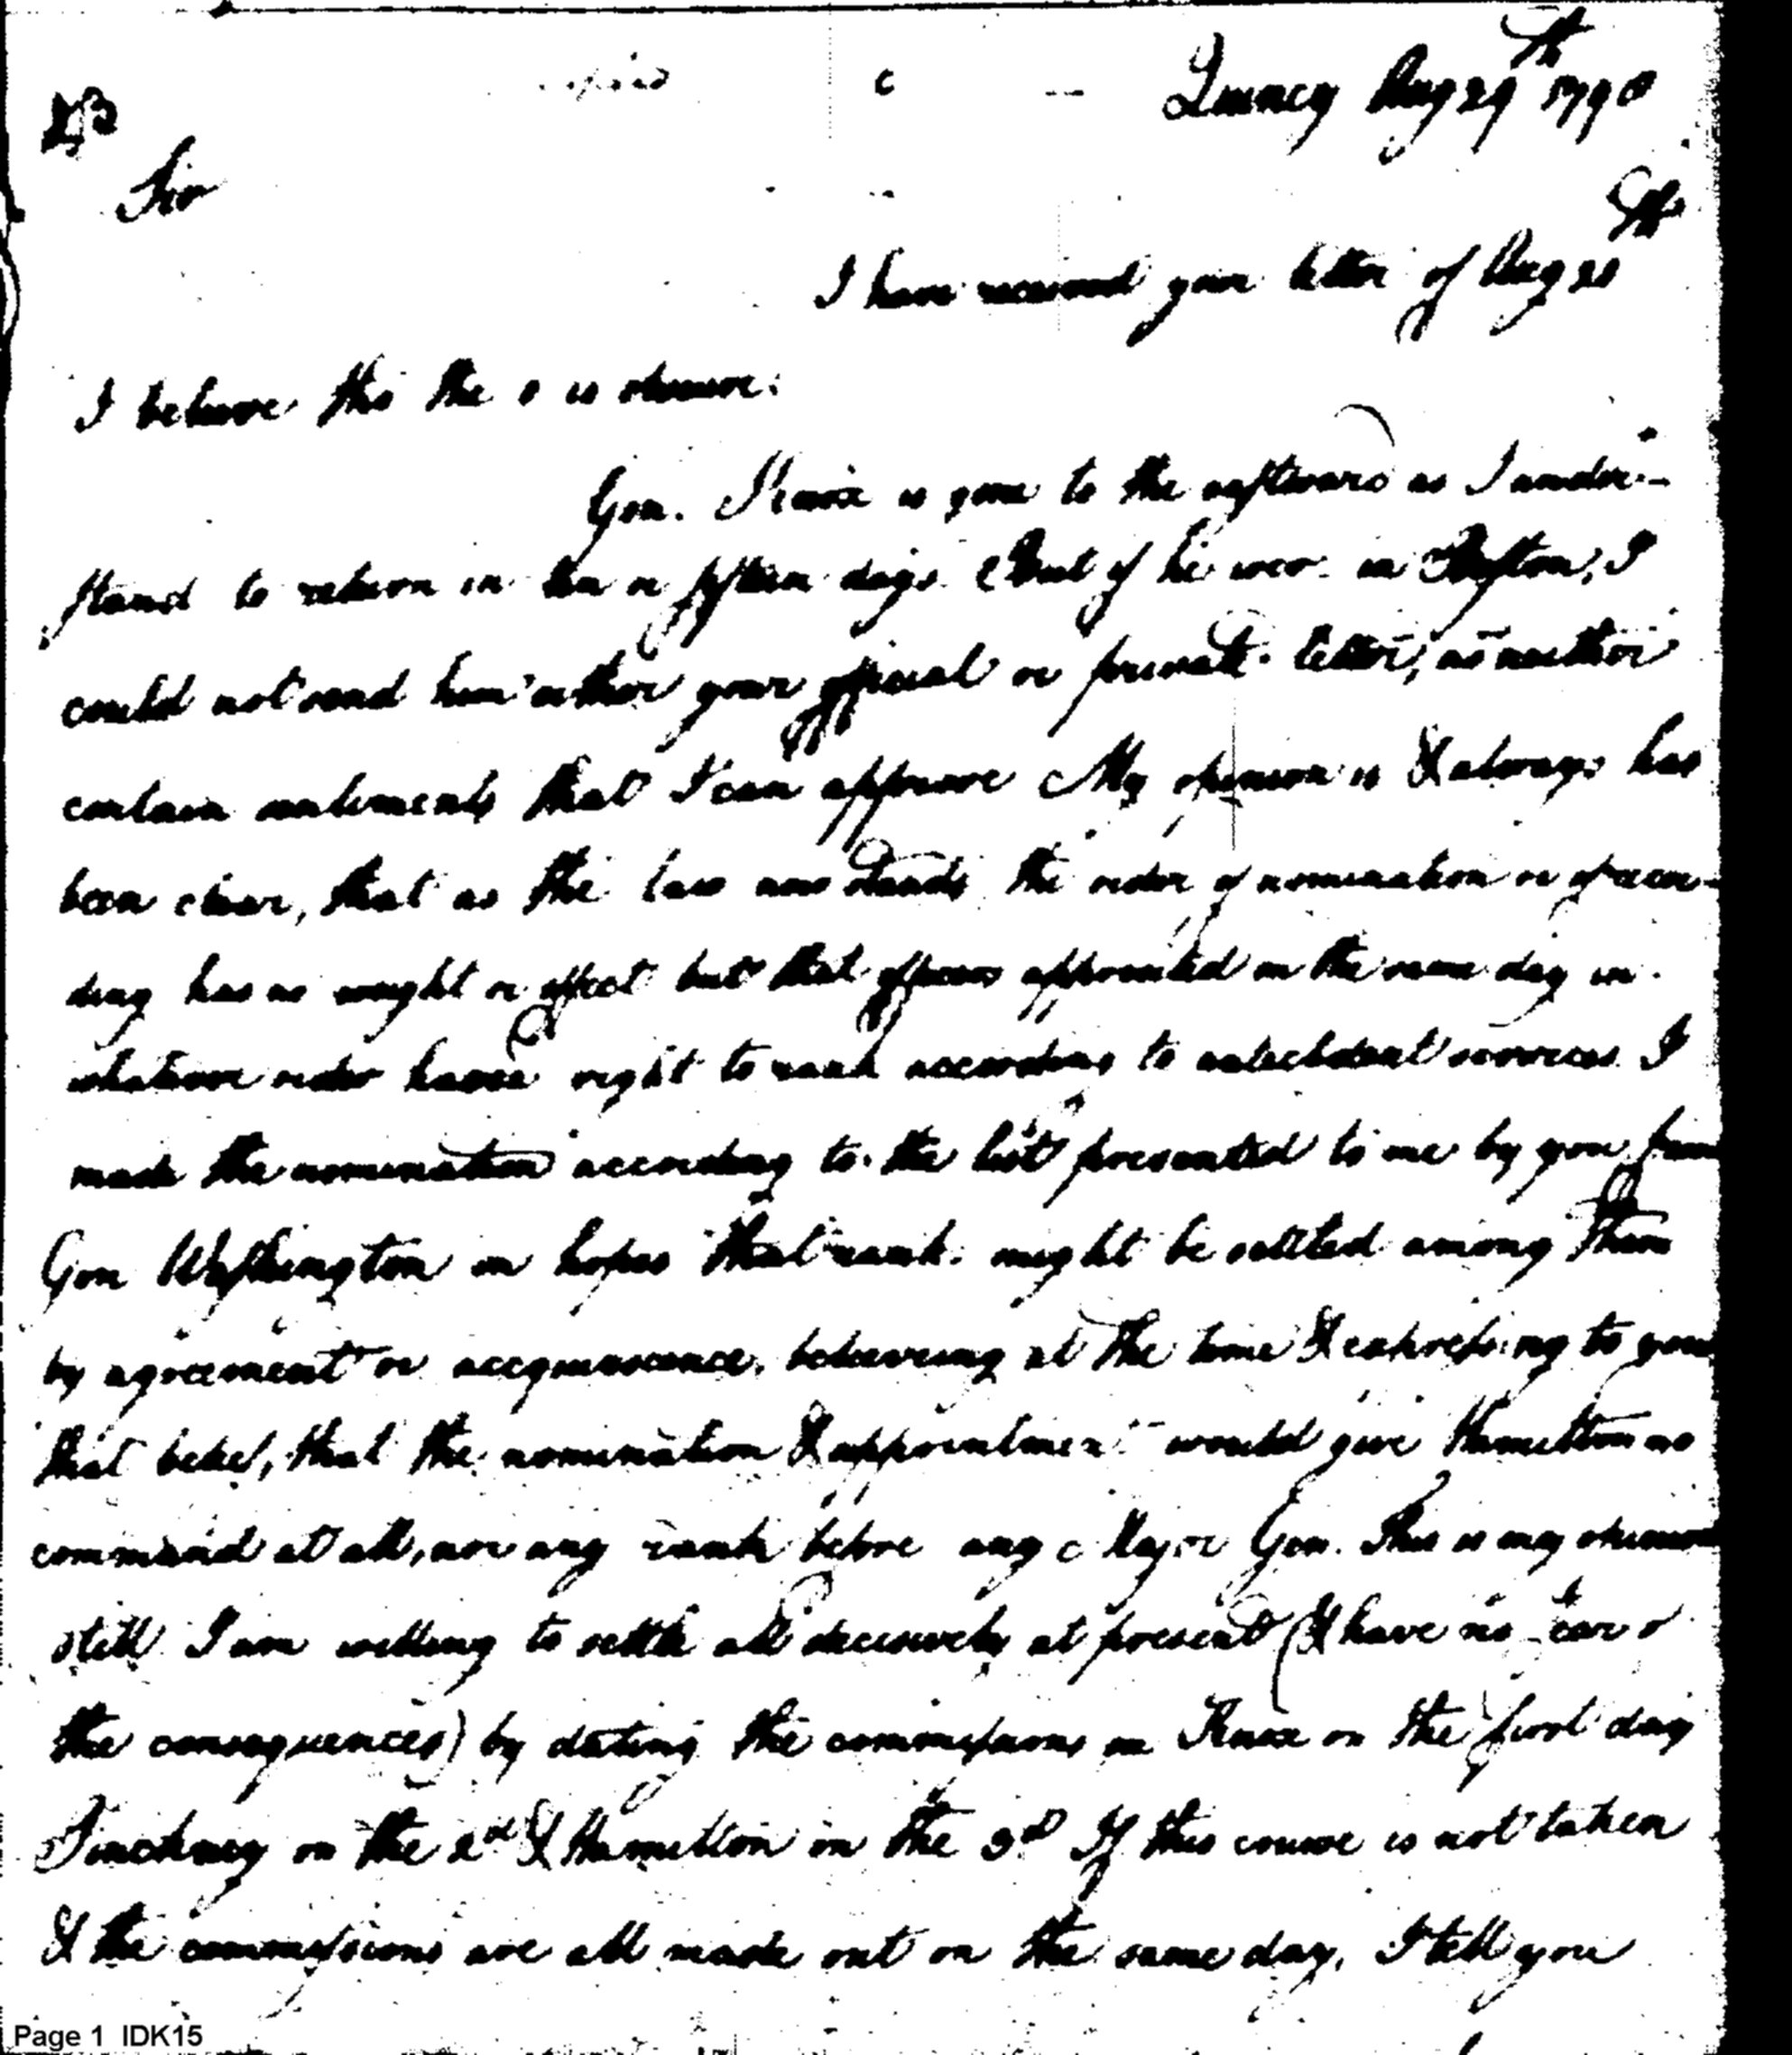 Quincy Aug 29th 1798
Sir
I have received your letter of Aug
I believe tho the is obscure.
Gen. Knox is gone to the eastward as I under-
stand to return in ten or fifteen days. But if he were in Boston, I
could not read him either your official or private letter, as neither
contain sentiments that I can approve My opinion is & always has
been clear, that as the law now stands the order of nomination or of recor-
ding has no weight or effect but that officers appointed on the same day in
whatever order have a right to rank according to antecedent services. I
made the nomination according to the list presented to me by you from
Gen Washington in hopes that rank might be settled among them
by agreement or acquiescence, believing at the time & expressing to you
that belief, that the nomination & appointment would give Hamilton no
command at all, nor any rank before any Major Gen. This is my opinion
still I am willing to settle all decisively at present (& have no fear of
the consequences) by dating the commissions on Knox on the first day
Pinckney on the 2d & Hamilton on the 3d If this course is not taken
& the commissions are all made out on the same day, I tell you
Page 1 IDK15